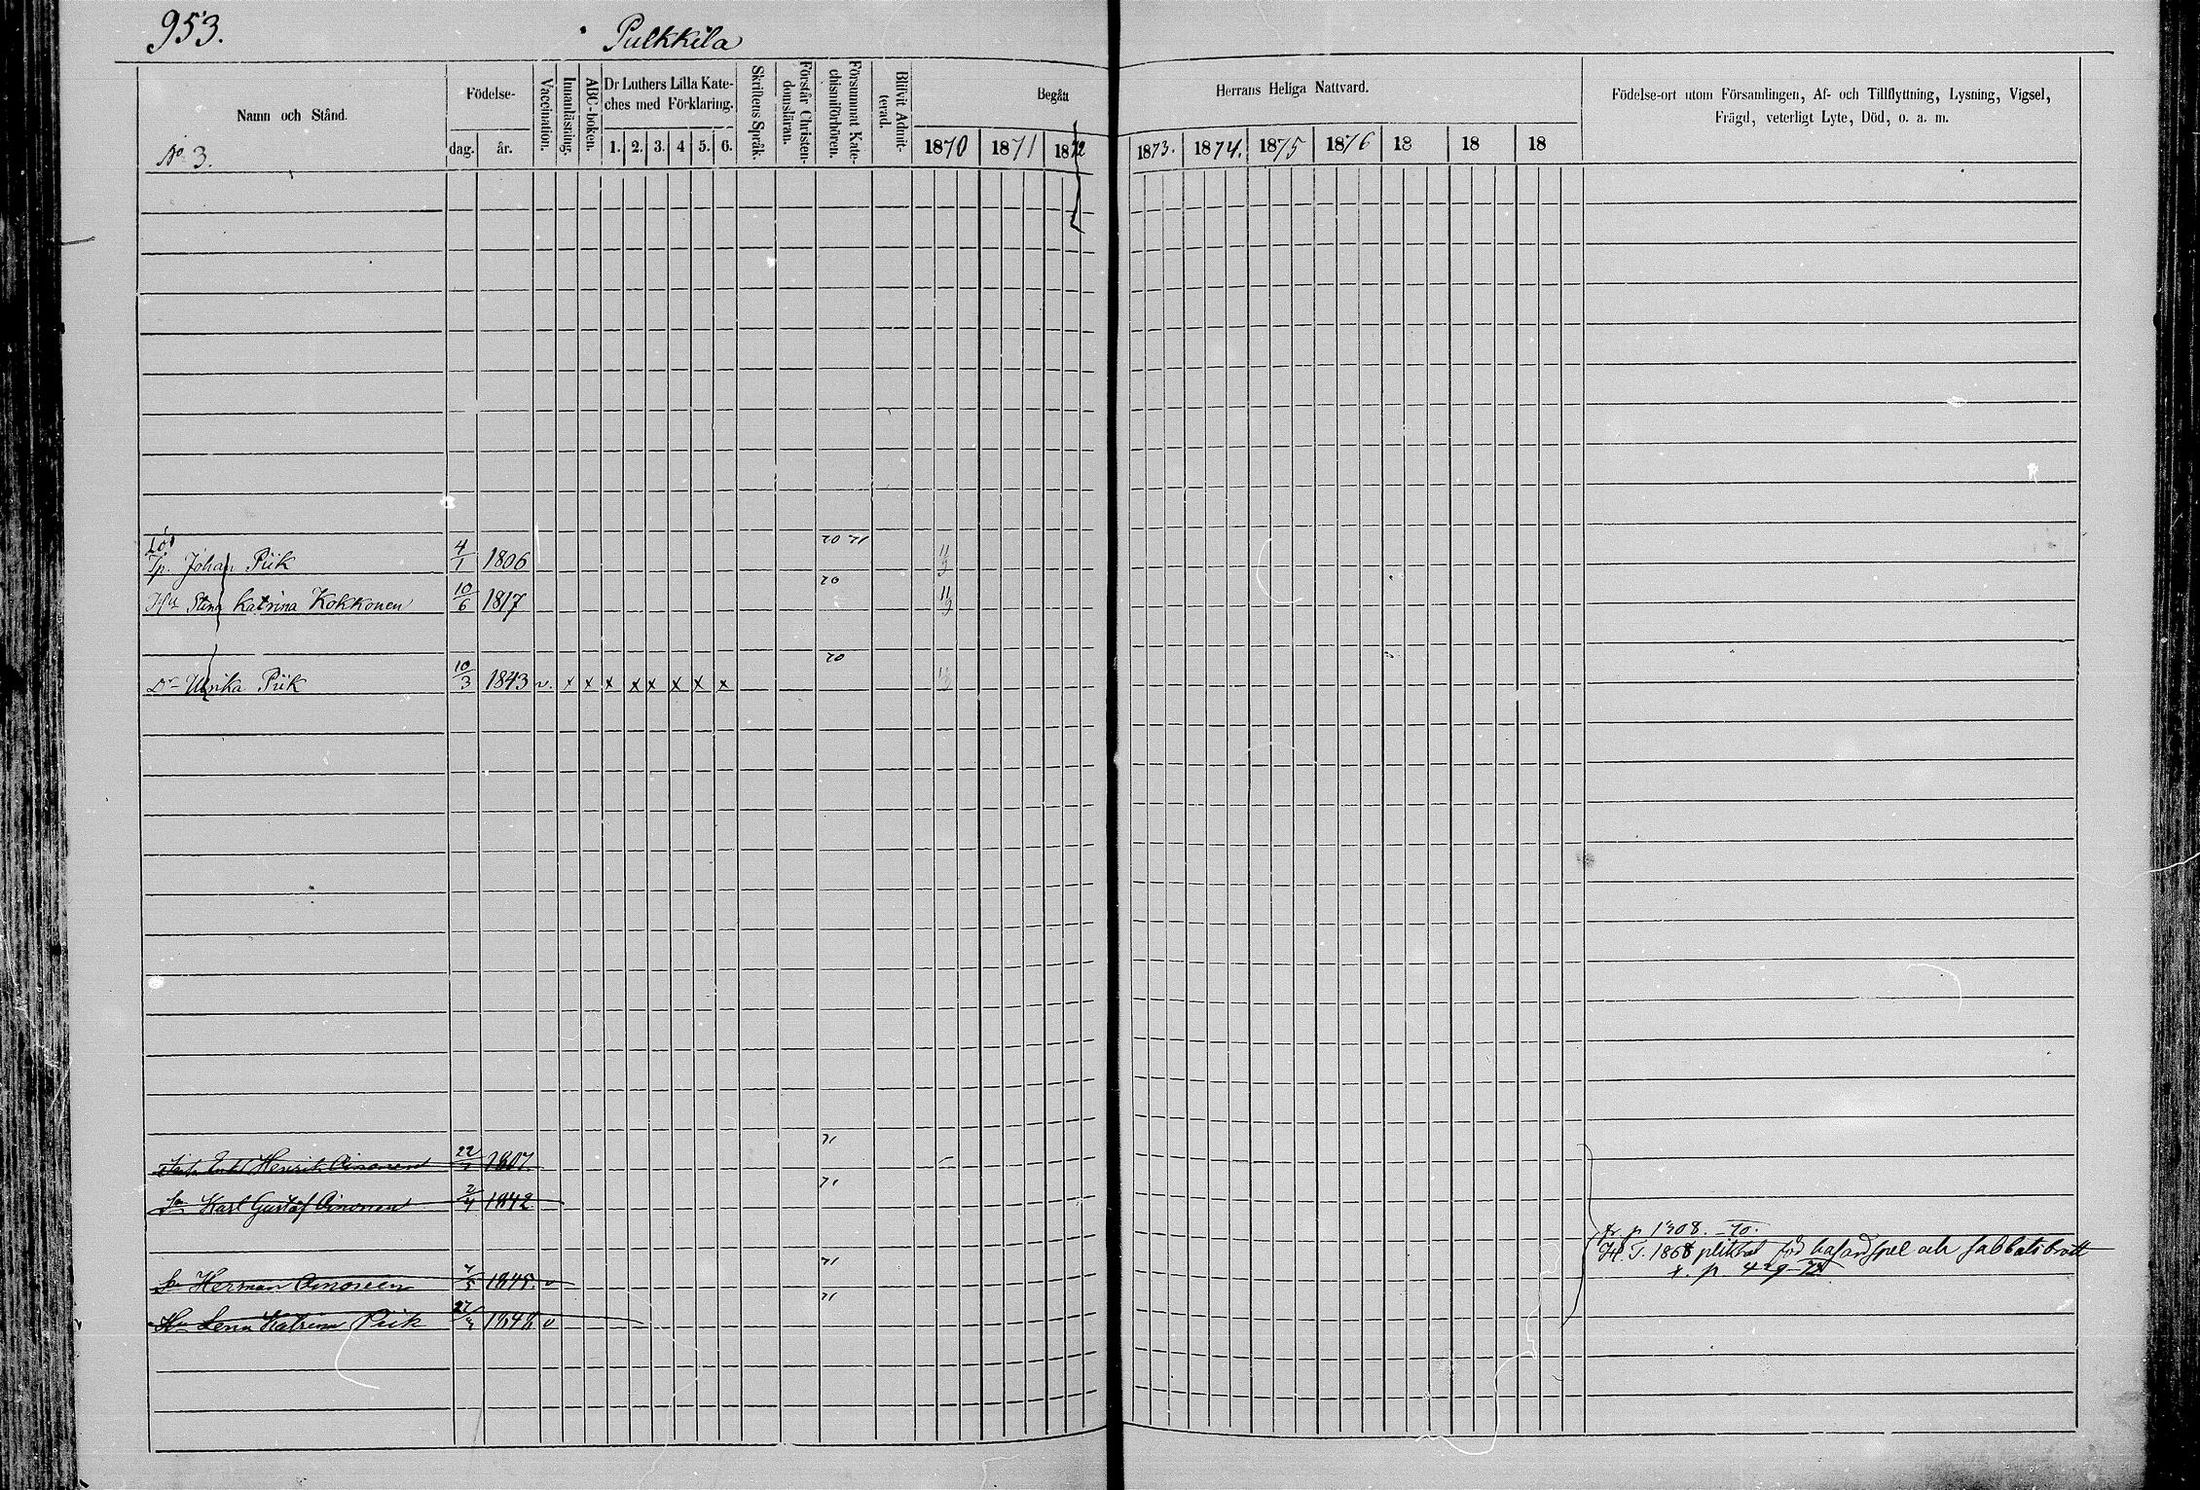 953. Pulkkila
Namn och Stånd.
No 3.
Födelse-
dag. år.
Vaccination.
Innanläsning.
ABC-boken.
Dr Luthers Lilla Kate-
ches med Förklaring.
1. 2. 3. 4 5. 6.
Skriftens Språk.
Förstår Christen-
domsläran.
Försummat Kate-
chismiförhören.
Blifvit Admit-
terad.
Begått Herrans Heliga Nattvard.
1870 1871 1872 1873. 1874. 1875 1876 18 18 18
Födelse-ort utom Församlingen, Af- och Tillflyttning, Lysning, Vigsel,
Frägd, veterligt Lyte, Död, o. a. m.
Johan Piik 4/1 1806 70 71 11/9
Hu Stina Katrina Kokkonen 10/6 1817 70 11/9
Dr Ulrika Piik 10/3 1843 v. x x x x x x x x 70
Enkl Henrik Oinonen 1807 71
Sn Karl Gustaf Oinonen 2/4 1842 71
fr. p. 1308. -70.
H. T. 1868 pliktat för hasardspel och sabbatsbrott
t. p. 429-72
Sn Herman Oinonen 1845 v 71
Hu Lena Katrina Piik 1848 v 71